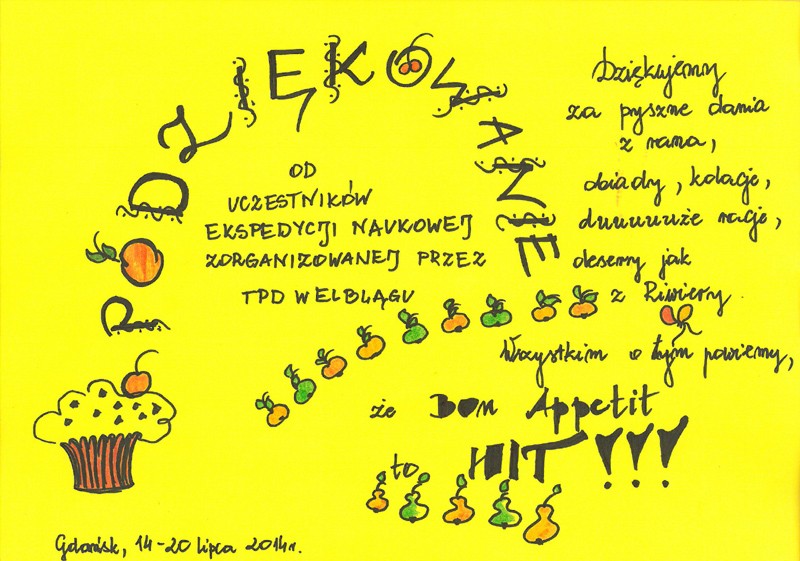 PODZIĘKOWANIE
OD
UCZESTNIKÓW
EKSPEDYCJI NAUKOWEJ
ZORGANIZOWANEJ PRZEZ
TPD W ELBLĄGU
Dziękujemy
za pyszne dania
z rana,
obiady, kolacje,
duuuuuże racje,
desery jak
z Riwiery.
Wszystkim o tym powiemy,
że Bon Appetit
to HIT!!!
Gdańsk, 14-20 lipca 2014r.